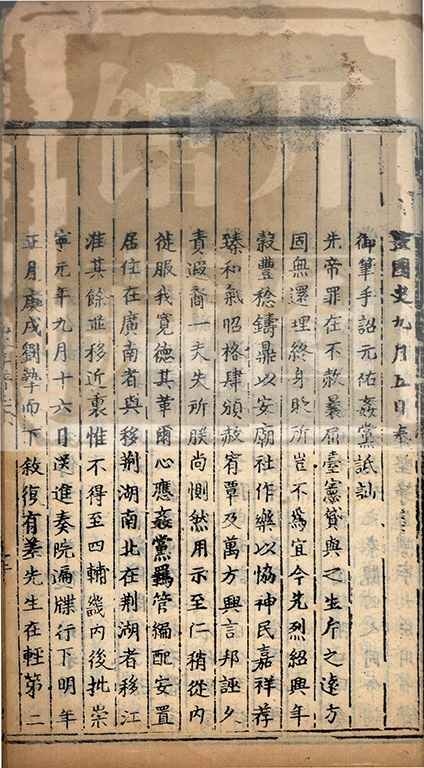 國史九月五日奉
御筆手詔元祐姦黨詆訕
先帝罪在不赦曩屈臺憲貸與之生斥之逺方
固無還理終身貶所豈不為宜今先烈紹興年
榖豐稔鑄鼎以安廟社作樂以恊神民嘉祥荐
臻和氣昭格肆頒赦宥覃及萬方興言邦誣久
責遐裔一夫失所朕尚惻然用示至仁稍從内
徙服我寛德其革爾心應姦黨羈管編配安置
居住在廣南者與移荆湖南北在荆湖者移江
淮其餘並移近裏惟不得至四輔畿内後批崇
寧元年九月十六日送進奏院遍牒行下明年
正月庚戌劉摯而下敘復有差先生在輕第二